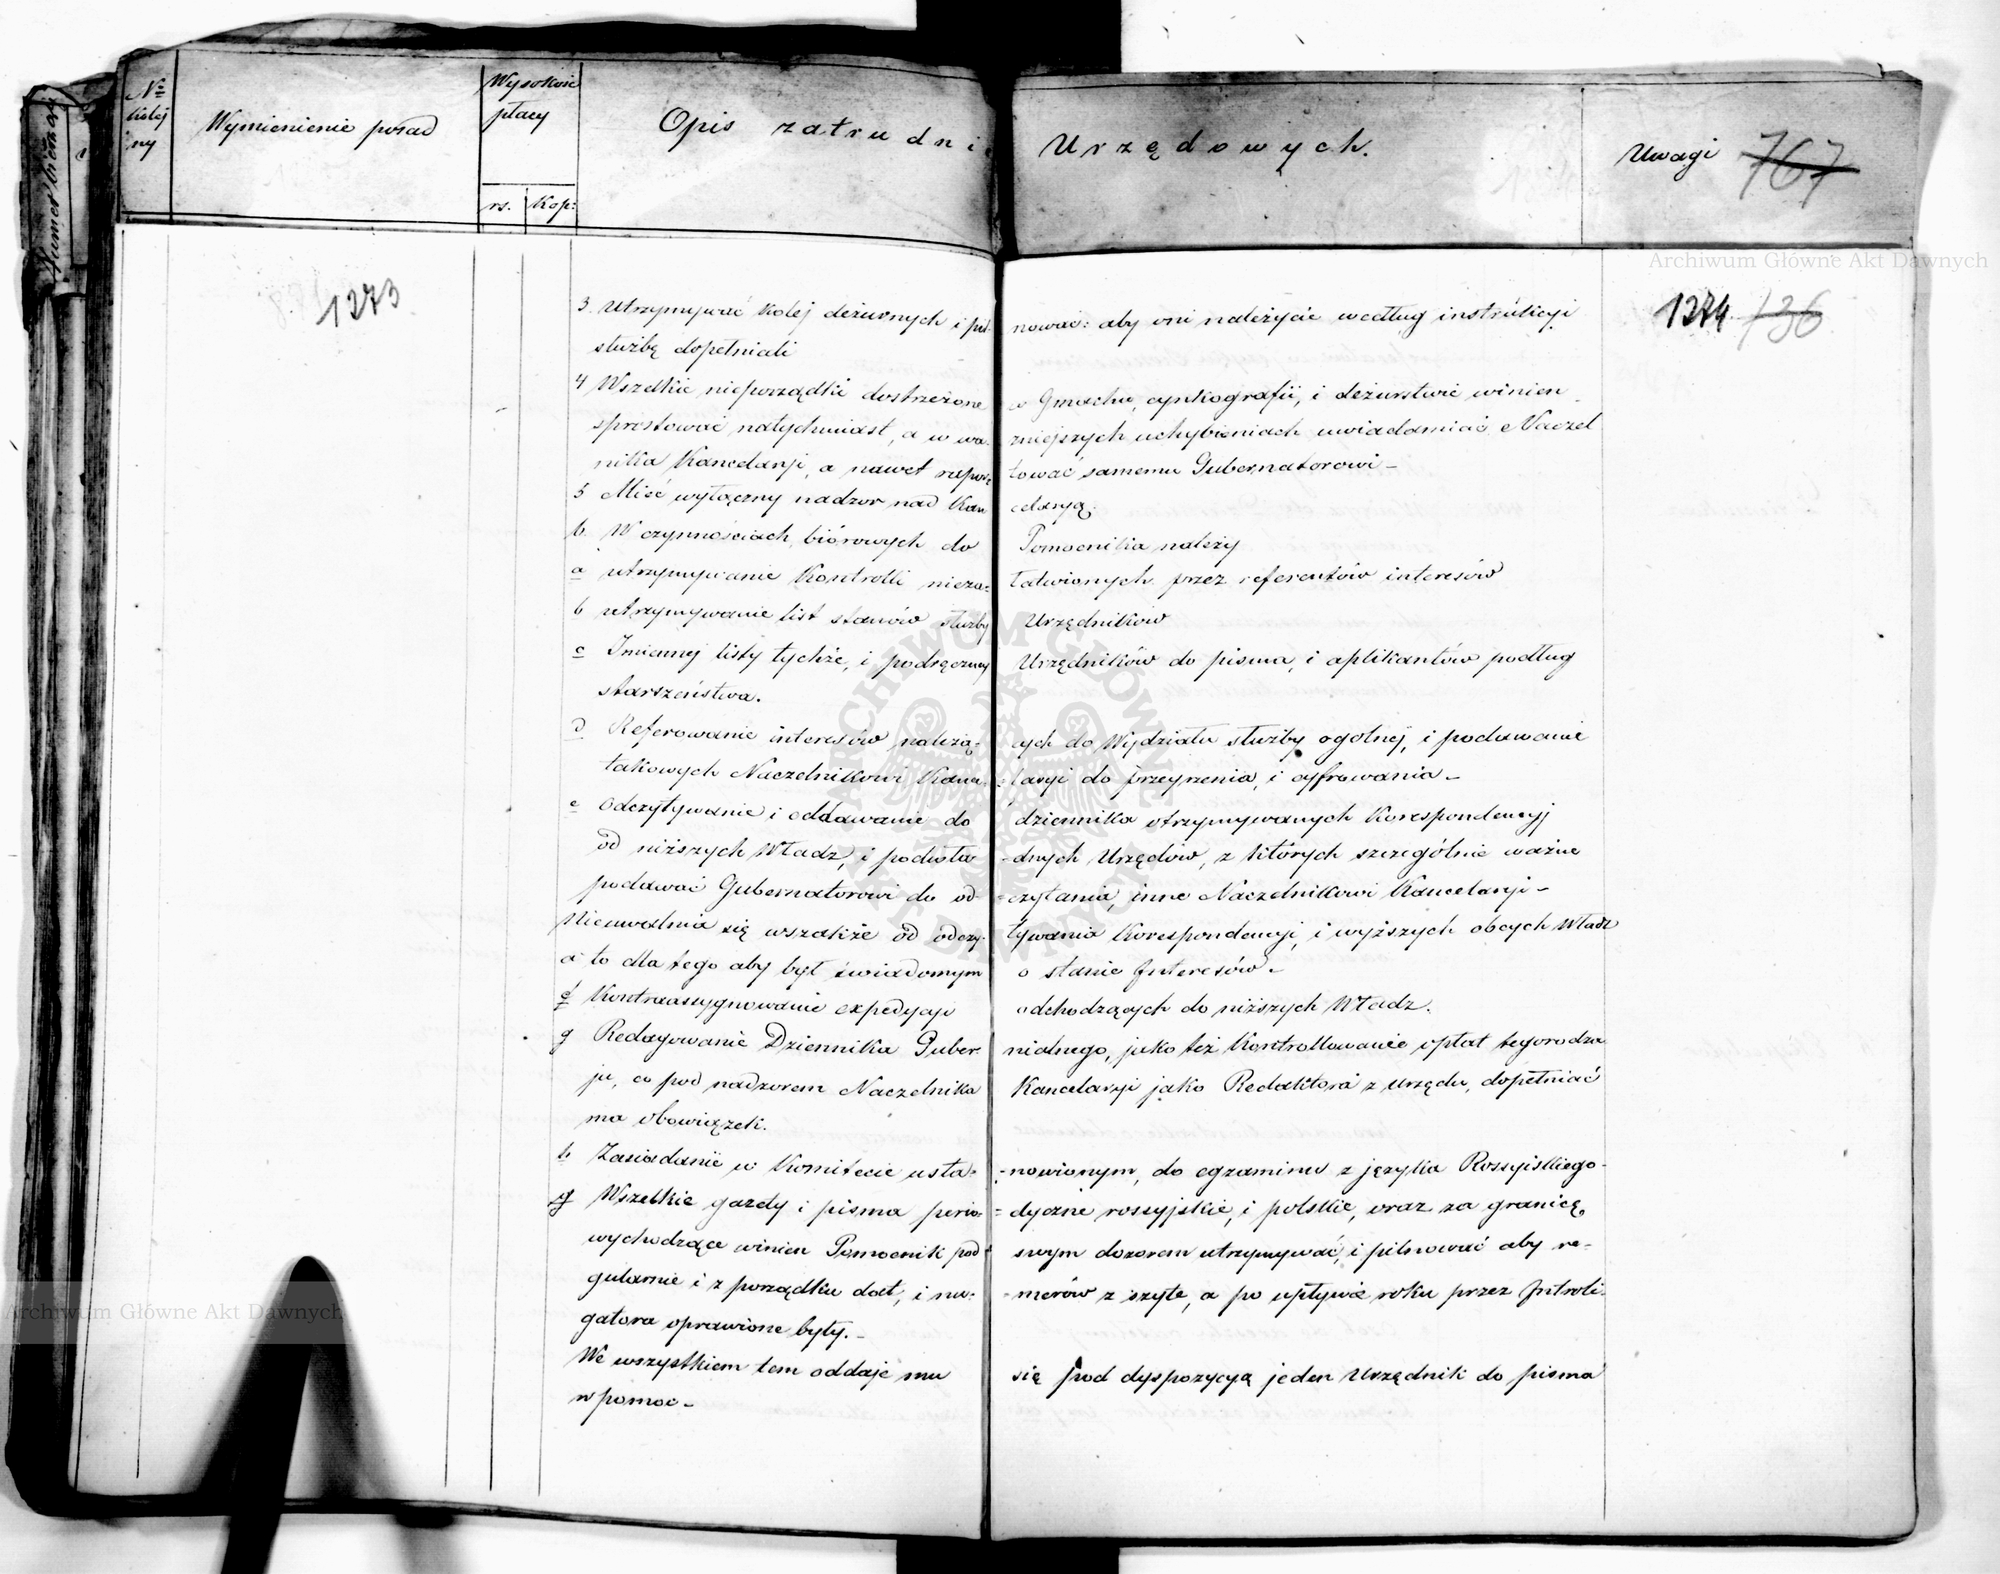 Numer bieżący
№ Kolej
ny
Wymienienie posad
Wysokość
płacy
rs. Kop:
Opis zatrudni Urzędowych.
Uwagi 767
1273
1274 736
3. Utrzymywać kolej deżurnych i pil nować: aby oni należycie według instrukcyi
służbę dopełniali
4 Wszelkie nieporządki dostrzeżone w Gmachu, cynkografii, i deżurstwie winien
sprostować natychmiast, a w wa- żniejszych uchybieniach uwiadamiać Naczel
nika Kancelarji, a nawet rapor- tować samemu Gubernatorowi –
5 Mieć wyłączny nadzor nad Kan celaryą.
6. W czynnościach biórowych do Pomocnika należy
a utrzymywanie Kontrolli nieza= łatwionych przez referentów interesów
b utrzymywanie list stanów służby Urzędników
c Imiennej listy tychże, i podręcznej Urzędników do pisma, i aplikantów podług
starszeństwa.
d Referowanie interesów należą= cych do Wydziału służby ogólnej, i podawanie
takowych Naczelnikowi Kance= laryi do przeyrzenia, i cyfrowania –
e Odczytywanie i oddawanie do dziennika otrzymywanych Korespondencyj
od niższych Władz, i podwła =dnych Urzędów, z których szczególnie ważne
podawać Gubernatorowi do od =czytania, inne Naczelnikowi Kancelaryi –
Nieuwalnia się wszakże od odczy- tywania Korespondencyi, i wyższych obcych Władz
a to dla tego aby był świadomym o stanie Interesów –
f Kontrassygnowanie expedycyi odchodzących do niższych Władz.
g Redagowanie Dziennika Guber= nialnego, jako też Kontrollowanie opłat tegorodza
ju, co pod nadzorem Naczelnika Kancelaryi jako Redaktora z urzędu, dopełniać
ma obowiązek.
h Zasiadanie w Komitecie usta= =nowionym, do egzaminu z języka Rossyiskiego –
g Wszelkie gazety i pisma perio= =dyczne rossyjskie, i polskie, oraz za granicą
wychodzące winien Pomocnik pod swym dozorem utrzymywać, i pilnować aby re=
gularnie i z porządku dat, i nu= =merów zszyte, a po upływie roku przez Introli=
gatora oprawione były. –
We wszystkiem tem oddaje mu się pod dyspozycyą jeden Urzędnik do pisma
w pomoc –
Archiwum Główne Akt Dawnych
Archiwum Główne Akt Dawnych
ARCHIWUM GŁÓWNE AKT DAWNYCH